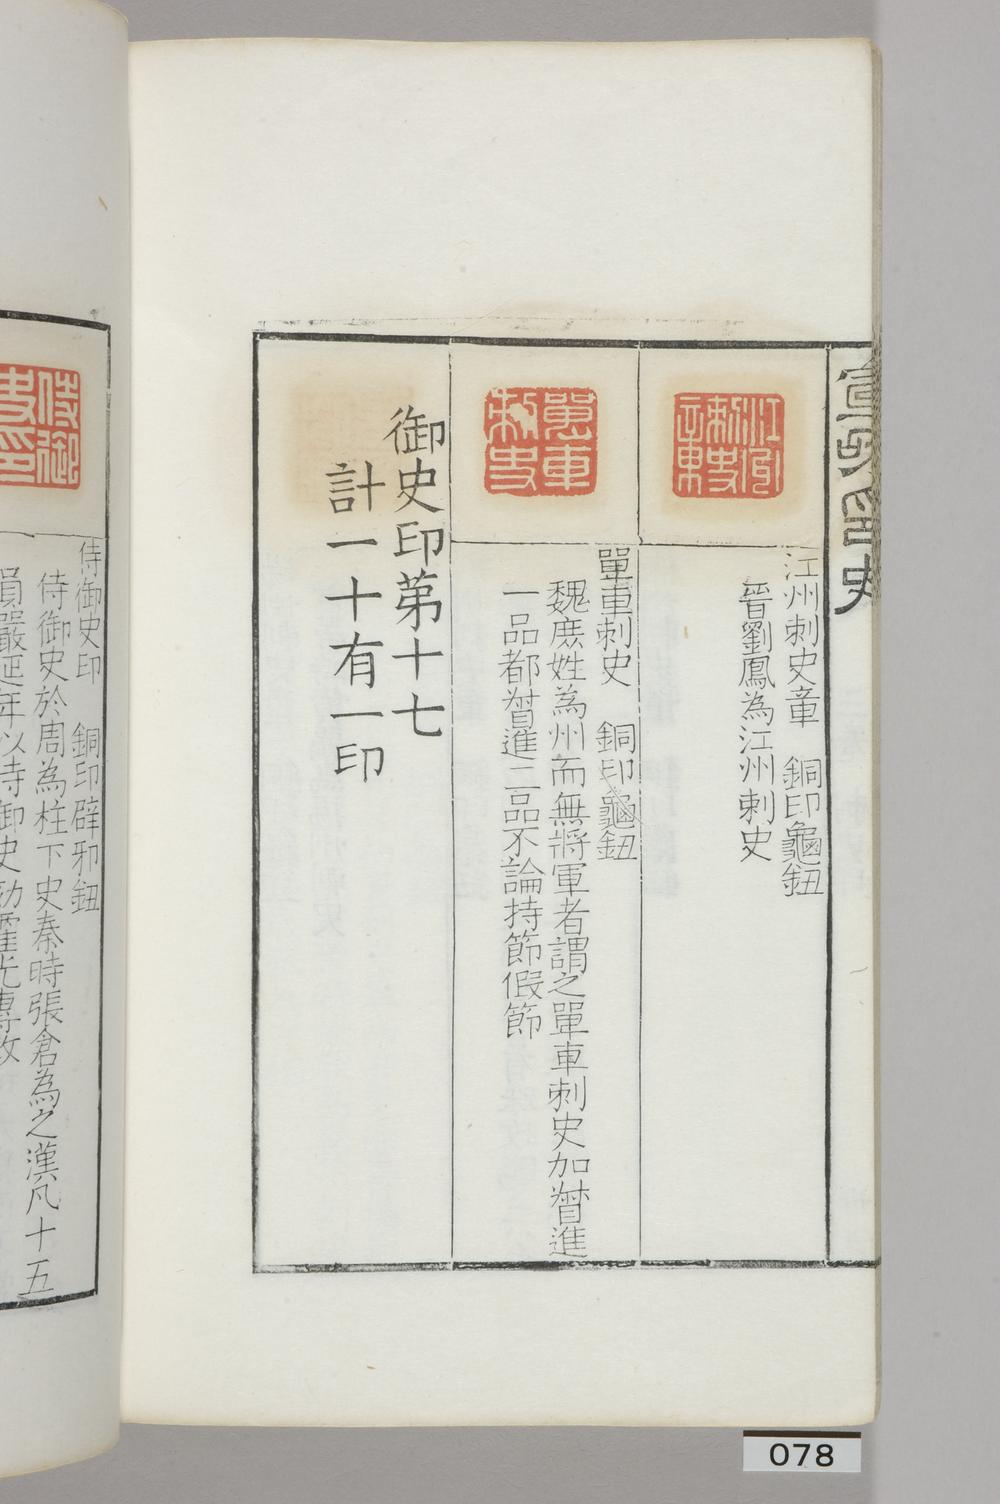 宣和印史
江州刺史章
江州刺史章　銅印龜鈕
晉劉鳳為江州刺史
單車刺史
單車刺史　銅印龜鈕
魏庶姓為州而無將軍者謂之單車刺史加督進
一品都督進二品不論持節假節
御史印第十七
計一十有一印
侍御史印
侍御史印　銅印辟邪鈕
侍御史於周為柱下史秦時張倉為之漢凡十五
員嚴延年以侍御史劾霍光專政
078